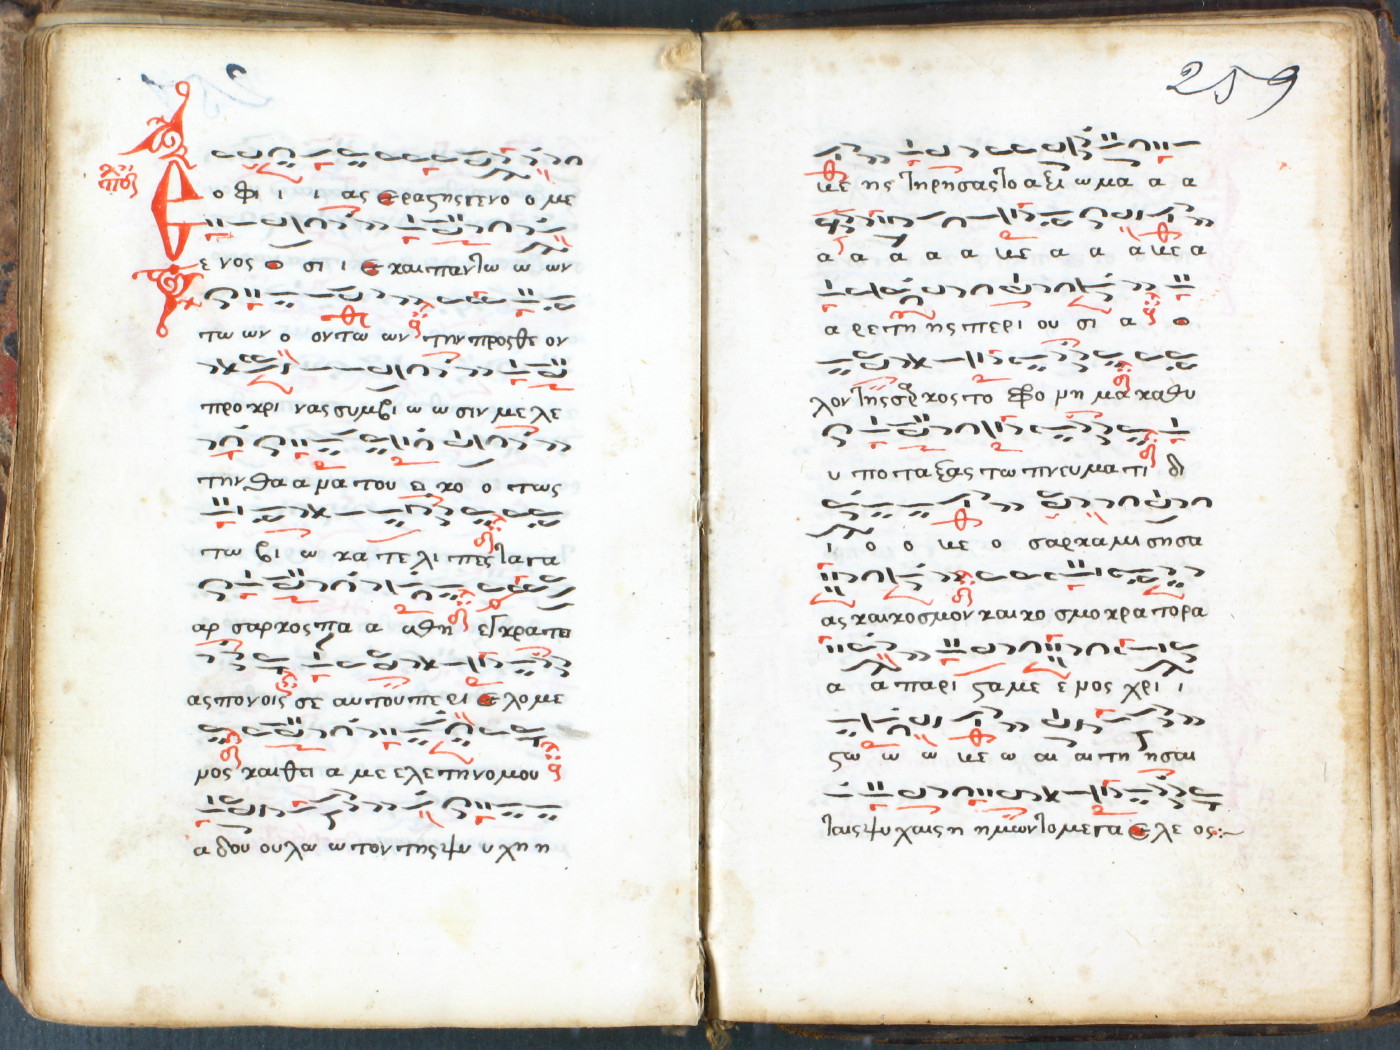 ο φι ι ι ας εραςηςγενο ο με
ε νος ο σι ι ε καιπαντω ω ων
τω ων ο οντω ων την προςθε ον
προκρι νας συμβι ω ω σιν με λε
την θα α μα του ει κο ο τως
τω βι ω κα τε λι πες τα γα
αρ σαρκος πα α αθη εγκρατει
ας πονοις σε αυτου πε ρι ε λο με
μος και θει α με ελε τη νομου
α δου ου λω ω τον της ψυ υ χη η
259
κε ης τηρησας το αξι ω μα α α
α α α α α α κε α α α κε α
α ρε τη ης περι ου σι α ο
λον της σαρκος το φρο νη μα καθυ
υ ποταξας τω πνευματι δι
ι ο ο κε ο σαρκα μι σησα
ας και κοσμον και κο σμο κρα τορα
α α παρι ςα με ε μος χρι ι
ςω ω ω κε ω αι αι τη ησαι
ταις ψυχαις η ημων το με γα ε λε ος:~